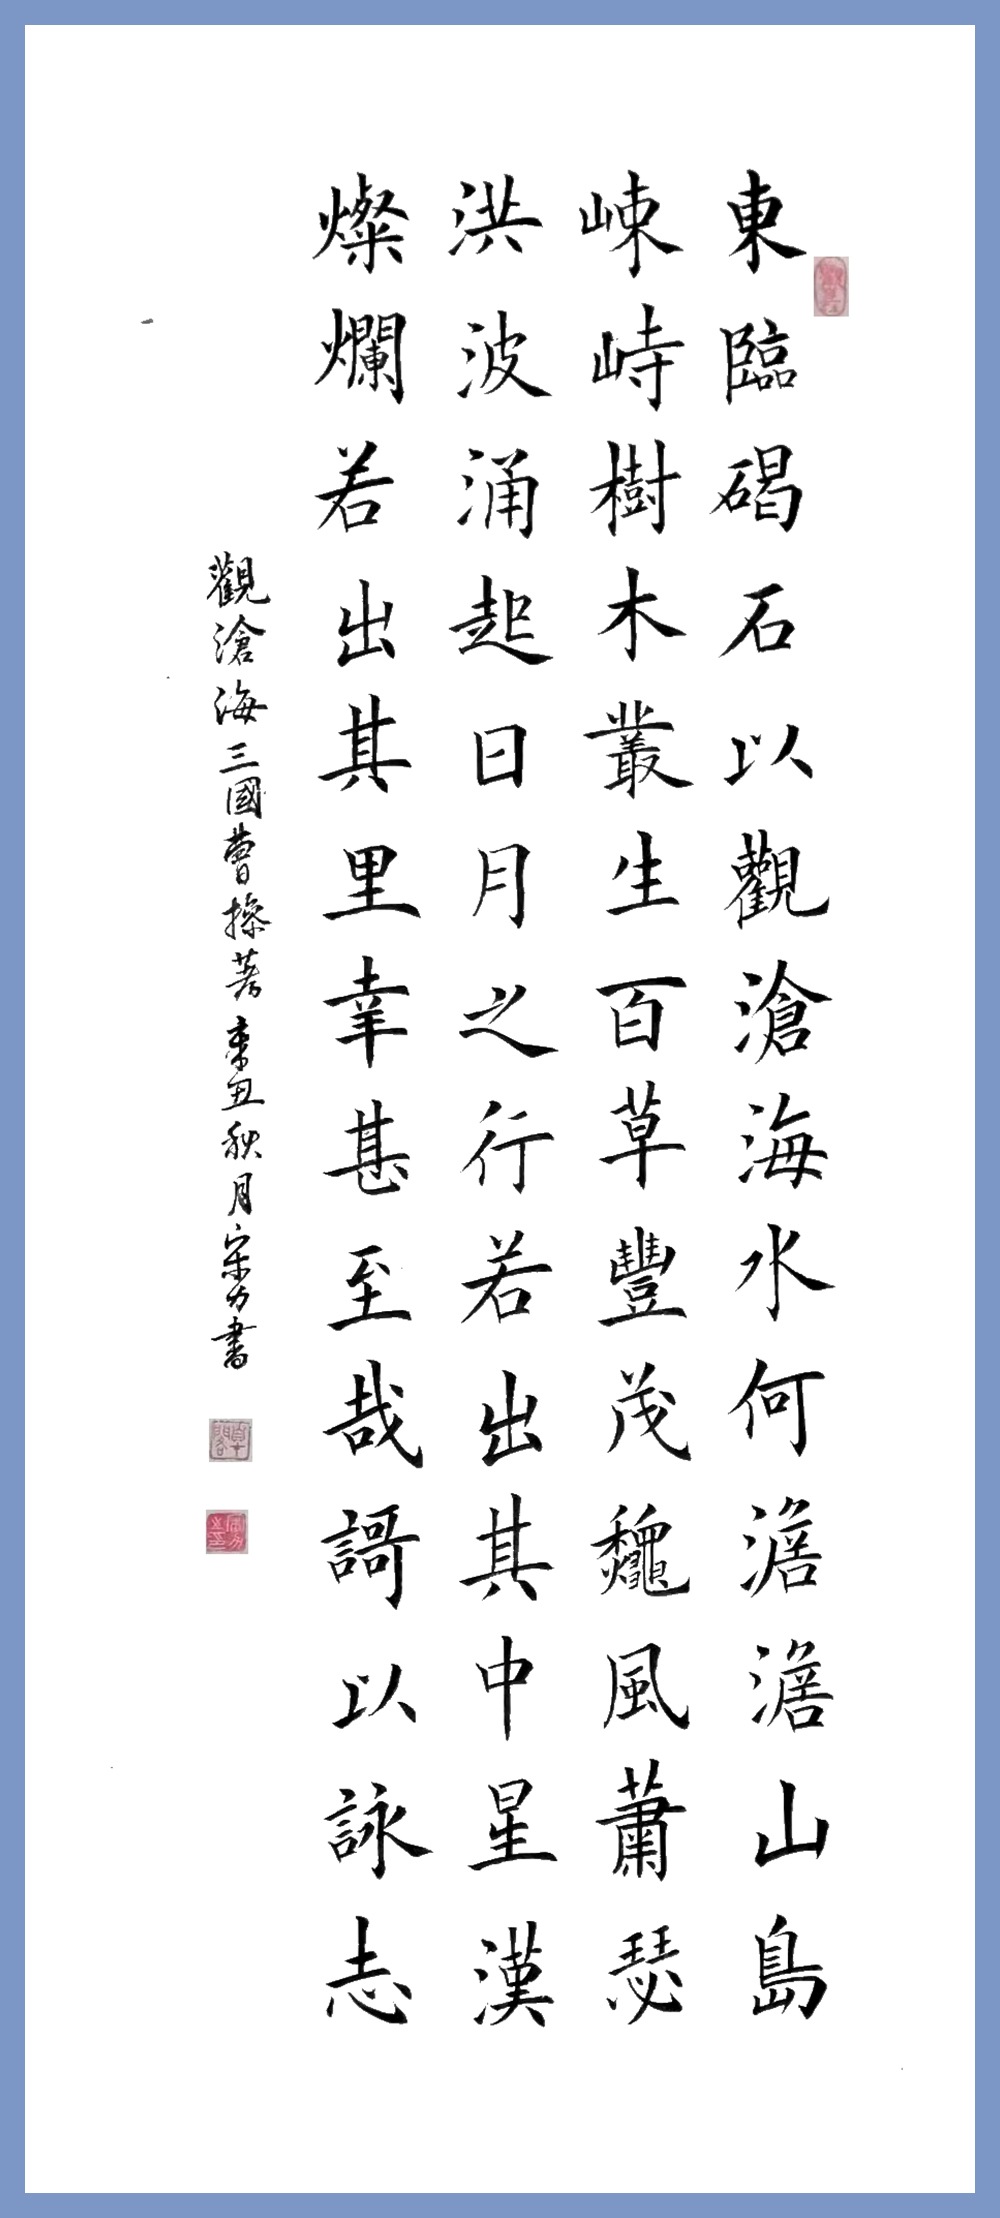 東臨碣石以觀滄海水何澹澹山島
崠峙樹木叢生百草豐茂龝風蕭瑟
洪波涌起日月之行若出其中星漢
燦爛若出其里幸甚至哉謌以詠志
觀滄海三國曹操著辛丑秋月宋力書